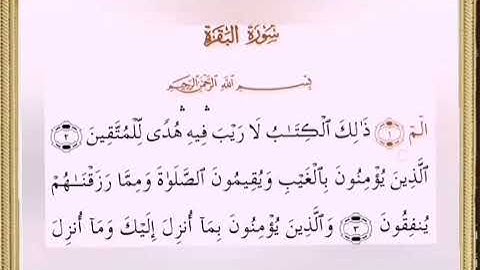 سُورَةُ البَقَرَةِ
بِسْمِ اللَّهِ الرَّحْمَٰنِ الرَّحِيمِ
الٓمٓ ١ ذَٰلِكَ ٱلْكِتَٰبُ لَا رَيْبَ ۛ فِيهِ ۛ هُدًى لِّلْمُتَّقِينَ ٢
ٱلَّذِينَ يُؤْمِنُونَ بِٱلْغَيْبِ وَيُقِيمُونَ ٱلصَّلَوٰةَ وَمِمَّا رَزَقْنَٰهُمْ
يُنفِقُونَ ٣ وَٱلَّذِينَ يُؤْمِنُونَ بِمَآ أُنزِلَ إِلَيْكَ وَمَآ أُنزِلَ